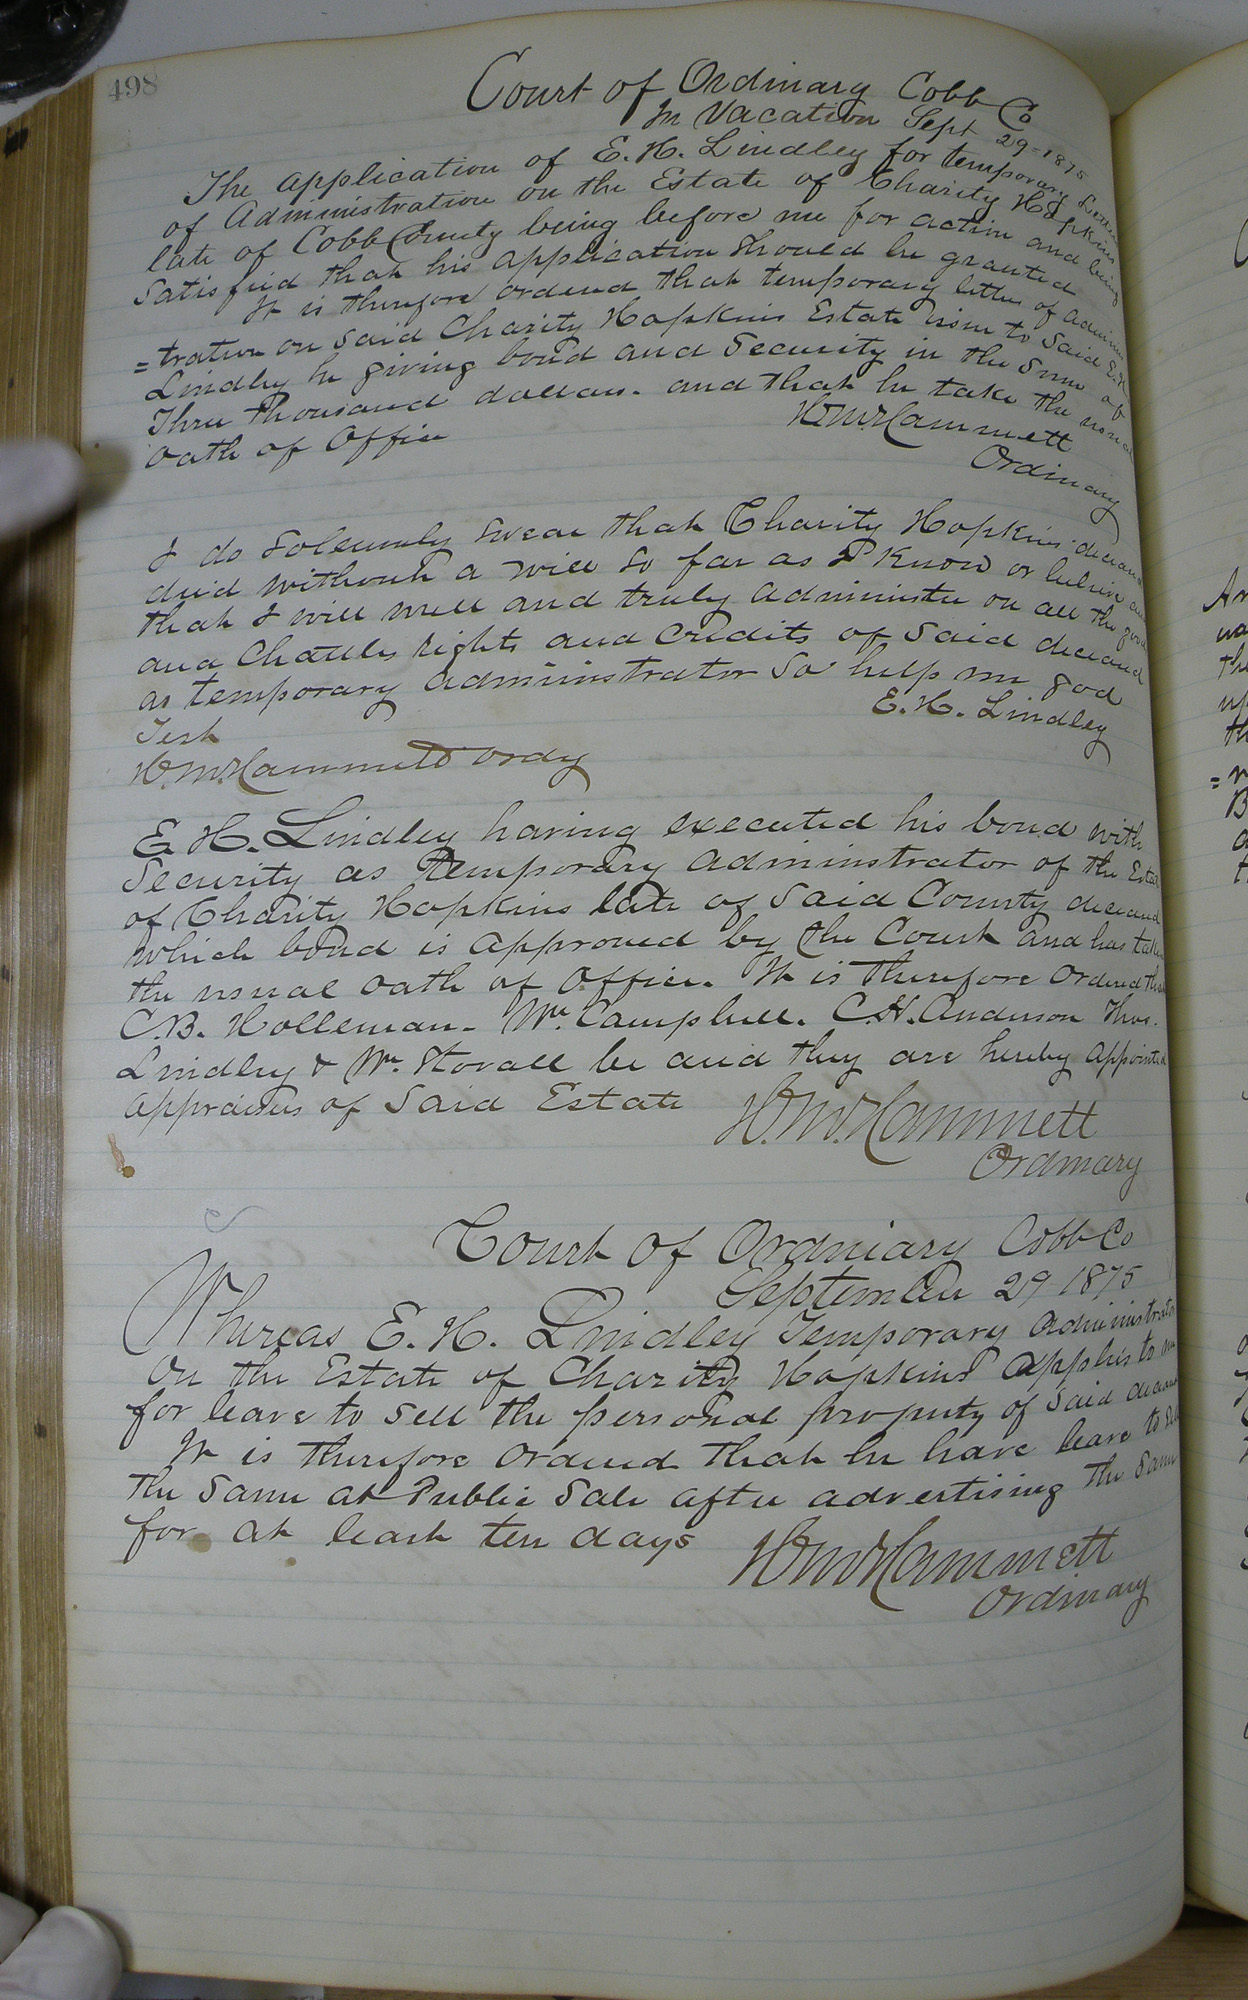 498
Court of Ordinary Cobb Co
In Vacation Sept 29-1875
The application of E. H. Lindley for temporary Letters
of Administration on the Estate of Charity Hopkins
late of Cobb County being before me for action and being
Satisfied that his application Should be granted
It is therefore ordered that temporary letters of Adminis
=tration on said Charity Hopkins Estate issue to Said E. H.
Lindley he giving bond and Security in the Sum of
Three thousand dollars. and that he take the usual
oath of Office
H M Hammett
Ordinary
I do Solemnly swear that Charity Hopkins deceased
died without a will so far as I Know or believe and
that I will well and truly administer on all the goods
and Chattles rights and credits of Said deceased
as temporary administrator So help me god
E. H. Lindley
Test
H. M. Hammett ordy
E H. Lindley having executed his bond with
Security as temporary administrator of the Estate
of Charity Hopkins late of Said County deceased
which bond is approved by the Court and has taken
the usual oath of Office. It is therefore ordered that
C. B. Holleman. Wm. Campbell. C. H. Anderson Thos.
Lindley & Wm. Stovall be and they are hereby appointed
appraisers of Said Estate
H. M. Hammett
Ordinary
Court of Ordinary Cobb Co
September 29 1875
Whereas E. H. Lindley Temporary administrator
on the Estate of Charity Hopkins applies to me
for leave to sell the personal property of Said deceased
It is therefore ordered that he have leave to Sell
the Same at Public Sale after advertising the Same
for at least ten days
H M Hammett
Ordinary